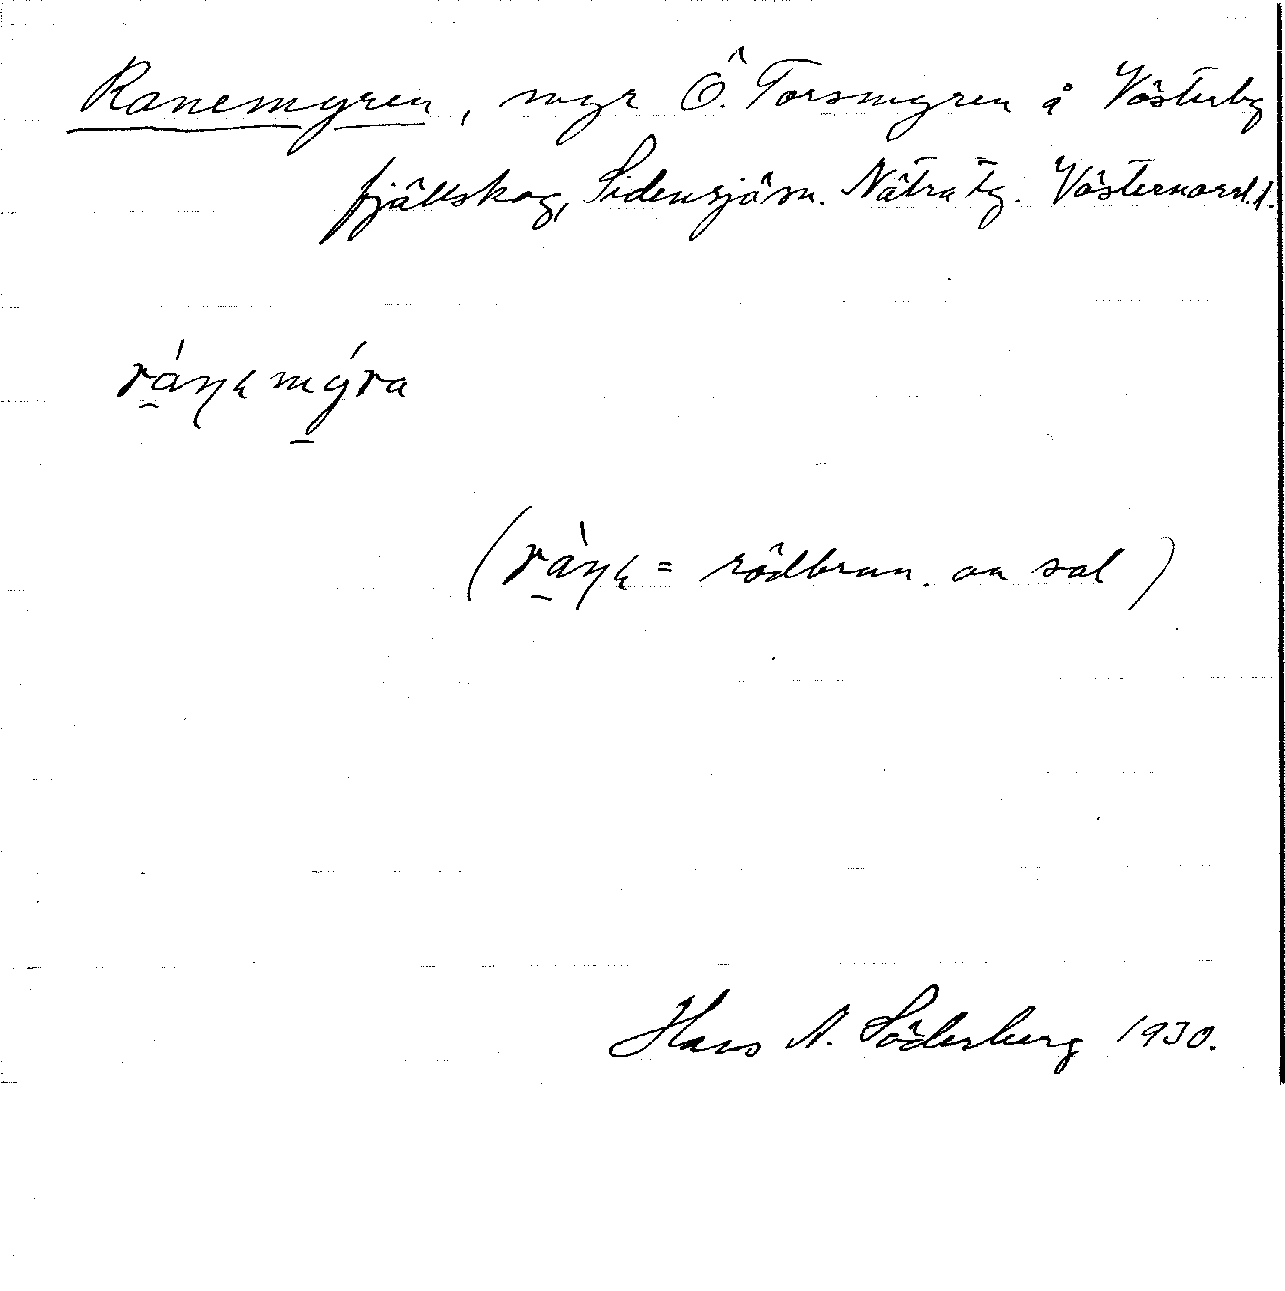 Ranemyren, myr Ö. Torsmyren å Västerby
fjällskog, Sidensjö sn. Nätra tg. Västernorrl. l.
ránɥ mýra
(rànɥ = rödbrun. om sal)
Hans A. Söderberg 1930.